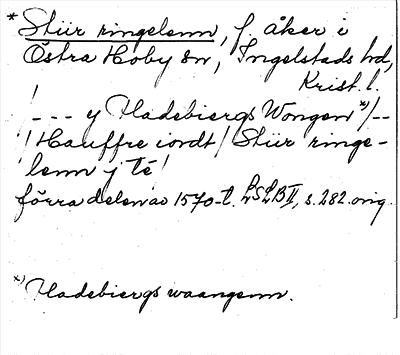 * Stiir ringelenn, f. åker i
Östra Hoby sn, Ingelstads hd,
Krist. l.
! --- y Hadebiergs Wongen *)/--
/ Hauffre iordt / Stiir ringe-
lenn j té !
förra delen av 1570-t. LSLB II, s. 282. orig.
*) Hadebiergs waangenn.